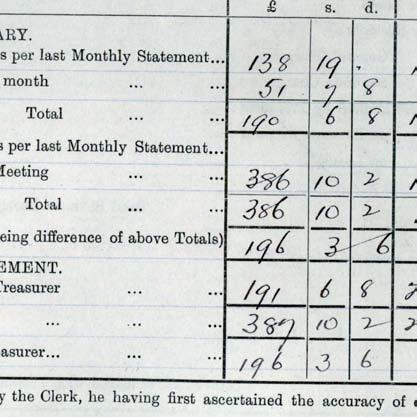 £ s. d.
ARY.
s per last Monthly Statement... 138 19 .
month ... ... 51 7 8
Total ... ... 190 6 8
s per last Monthly Statement...
Meeting ... ... 386 10 2
Total ... ... 386 10 2
eing difference of above Totals) 196 3 6
EMENT.
Treasurer ... ... 191 6 8
... ... ... 387 10 2
asurer... ... ... 196 3 6
y the Clerk, he having first ascertained the accuracy of